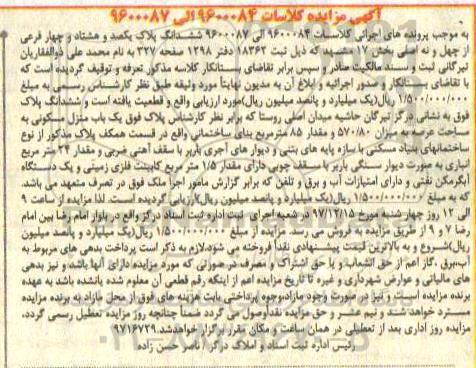 آگهی مزایده کلاسات ۹۶۰۰۰۸۴ الی ۹۶۰۰۰۸۷
به موجب پرونده های اجرائی کلاسات ۹۶۰۰۰۸۴ الی ۹۶۰۰۰۸۷ ششدانگ پلاک یکصد و هشتاد و چهار فرعی
از چهل و نه اصلی بخش ۱۷ مشهد که ذیل ثبت ۱۸۳۶۲ دفتر ۱۲۹۸ صفحه ۳۲۷ به نام محمد علی ذوالفقاریان
تیرگانی ثبت و سند مالکیت صادر و سپس برابر تقاضای بستانکار کلاسه مذکور تعرفه و توقیف گردیده است که
با تقاضای بستانکار و صدور اجرائیه و ابلاغ آن به مدیون نهایتاً مورد وثیقه طبق نظر کارشناس رسمی به مبلغ
۱/۵۰۰/۰۰۰/۰۰۰ ریال(یک میلیارد و پانصد میلیون ریال)مورد ارزیابی واقع و قطعیت یافته است و ششدانگ پلاک
فوق به نشانی درگز تیرگان حاشیه میدان اصلی روستا که برابر نظر کارشناس پلاک فوق یک باب منزل مسکونی به
مساحت عرصه به میزان ۵۷۰/۸۰ و مقدار ۸۵ مترمربع بنای ساختمانی واقع در قسمت همکف پلاک مذکور از نوع
ساختمانهای بنیاد مسکنی با سازه پایه های بتنی و دیوار های آجری باربر با سقف آهنی ضربی و مقدار ۲۴ متر مربع
انباری به صورت دیوار سنگی باربر با سقف چوبی دارای مقدار ۱/۵ متر مربع کابینت فلزی زمینی و یک دستگاه
آبگرمکن نفتی و دارای امتیازات آب و برق و تلفن که برابر گزارش مامور اجرا ملک فوق در تصرف متعهد می باشد.
که به مبلغ ۱/۵۰۰/۰۰۰/۰۰۰ ریال(یک میلیارد و پانصد میلیون ریال)ارزیابی گردیده است. لذا مزایده از ساعت ۹
الی ۱۲ روز چهارشنبه مورخ ۹۷/۱۲/۱۵ در شعبه اجرای ثبت اداره ثبت اسناد درگز واقع در بلوار امام رضا بین امام
رضا ۷ و ۹ از طریق مزایده به فروش می رسد. مزایده از مبلغ ۱/۵۰۰/۰۰۰/۰۰۰ ریال(یک میلیارد و پانصد میلیون
ریال)شروع و به بالاترین قیمت پیشنهادی نقداً فروخته می شود.لازم به ذکر است پرداخت بدهی های مربوط به
آب،برق ،گاز اعم از حق انشعاب و یا حق اشتراک و مصرف در صورتی که مورد مزایده دارای آنها باشد و نیز بدهی
های مالیاتی و عوارض شهرداری و غیره تا تاریخ مزایده اعم از اینکه رقم قطعی آن معلوم شده یانشده باشد به عهده
برنده مزایده است و نیز در صورت وجود مازاد،وجوه پرداختی بابت هزینه های فوق از محل مازاد به برنده مزایده
مسترد خواهد شد و نیم عشر و حق مزایده نقداًوصول می گردد ضمناً چنانچه روز مزایده تعطیل رسمی گردد،
مزایده روز اداری بعد از تعطیلی در همان ساعت و مکان مقرر برگزار خواهدشد.۹۷۱۶۷۲۹
رئیس اداره ثبت اسناد و املاک درگز، ناصر حسن زاده